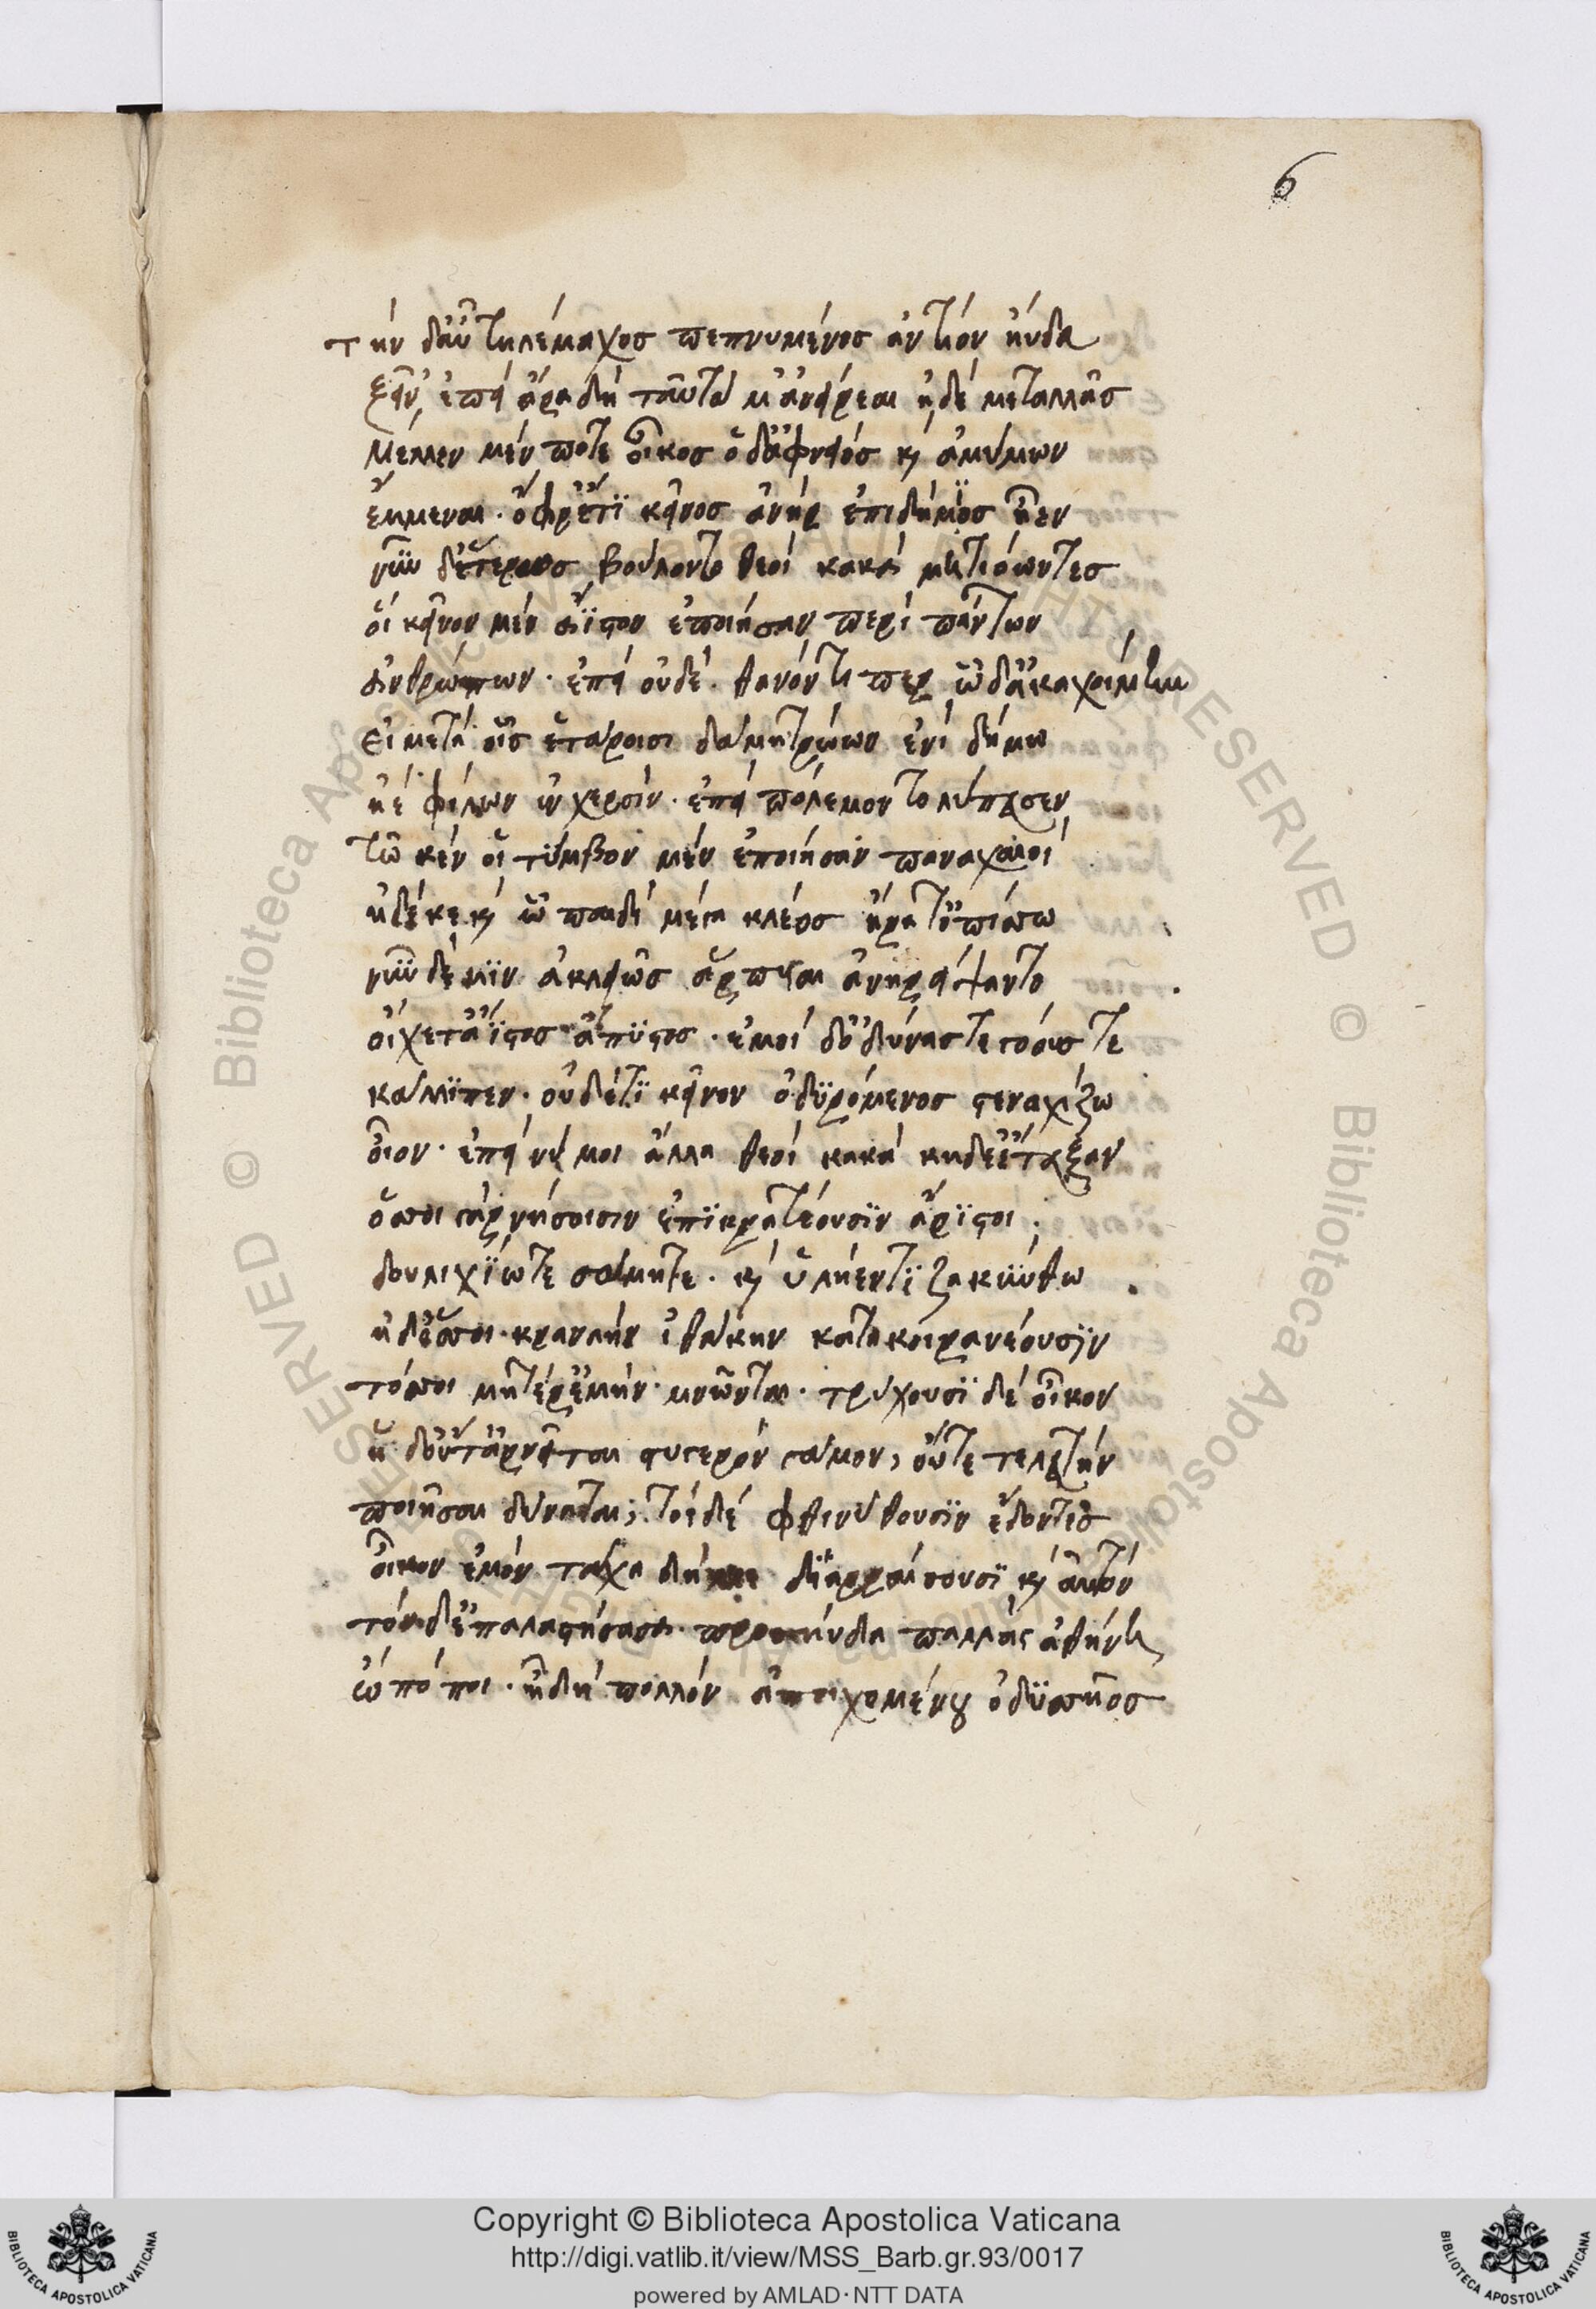 6
τὴν δ' αὖ τηλέμαχος πεπνυμένος ἀντίον ηὔδα
ξεῖν', ἐπεὶ ἄρ δὴ ταῦτά μ' ἀνείρεαι ἠδὲ μεταλλᾷς
μέλλεν μέν ποτε οἶκος ὅδ' ἀφνειός κ(αὶ) ἀμύμων
ἔμμεναι· ὄφρ' ἔτϊ κεῖνος ἀνὴρ ἐπιδήμϊος ἦεν
νῦν δ' ἑτέρως βούλοντο θεοὶ κακὰ μητιόωντες
οἳ κεῖνον μὲν ἄϊστον ἐποίησαν περὶ πάντων
ἀνθρώπων· ἐπεὶ οὐδέ· θανόντι περ ὧδ' ἀκαχοίμην
εἰ μετὰ οἷς ἑτάροισι δάμη τρώων ἐνὶ δήμω
ἠὲ φίλων ἐν χερσὶν· ἐπεὶ πόλεμον τολύπευσεν
τῶ κέν οἱ τύμβον μὲν ἐποίησαν παναχαιοὶ
ἠδέ κε κ(αὶ) ὧ παιδὶ μέγα κλέος ἤρατ' ὀπίσσω
νῦν δέ μϊν ἀκλειῶς ἅρπυιαι ἀνηρείψαντο
οἴχετ' ἄϊστος ἄπϋστος· ἐμοὶ δ' ὀδύνας τε γόους τε
κάλλϊπεν· οὐδ' ἔτϊ κεῖνον ὀδϋρόμενος στεναχίζω
οἶον· ἐπεί νύ μοι ἄλλα θεοὶ κακὰ κήδε' ἔτευξαν
ὅσσοι γὰρ νήσοισιν ἐπϊκρατέουσϊν ἄρϊστοι·
δουλιχΐω τε σάμη τε· κ(αὶ) ὑλήεντϊ ζακύνθω
ἠδ' ὅσσοι· κραναὴν ἰθάκην κάτα κοιρανέουσϊν
τόσσοι μητέρ' ἐμὴν· μνῶνται· τρύχουσϊ δὲ οἶκον
ἡ δ' οὔτ' ἀρνεῖται στυγερὸν γάμον, οὔτε τελευτὴν
ποιῆσαι δύναται; τοὶ δὲ φθινύθουσϊν ἔδοντες
οἶκον ἐμόν τάχα δή με δϊαρραίσουσϊ κ(αὶ) αὐτόν
τὸν δ' ἐπαλαστήσασα· προσηύδα παλλὰς ἀθήνη
ὢ πόποι· ἦ δὴ πολλὸν ἀποιχομένου ὀδϋσσῆος
Copyright © Biblioteca Apostolica Vaticana
http://digi.vatlib.it/view/MSS_Barb.gr.93/0017
powered by AMLAD·NTT DATA
BIBLIOTECA APOSTOLICA VATICANA
BIBLIOTECA APOSTOLICA VATICANA